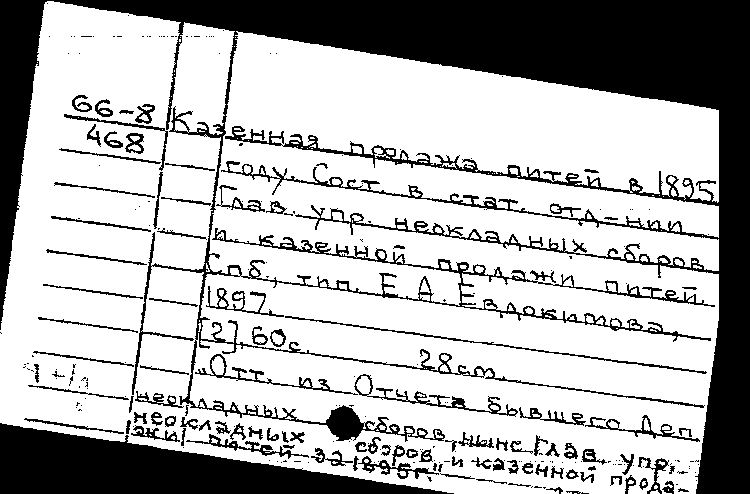 66-8
468
Казенная продажа питей в 1895
году. Сост. в стат. отд-нии
Глав. упр. неокладных сборов
и казенной продажи питей.
Спб., тип. Е. А. Евдокимова,
1897.
[2], 60с. 28см.
"Отт. из Отчета бывшего Деп.
неокладных сборов, ныне Глав. упр.
неокладных сборов и казенной прода-
жи питей за 1895г."